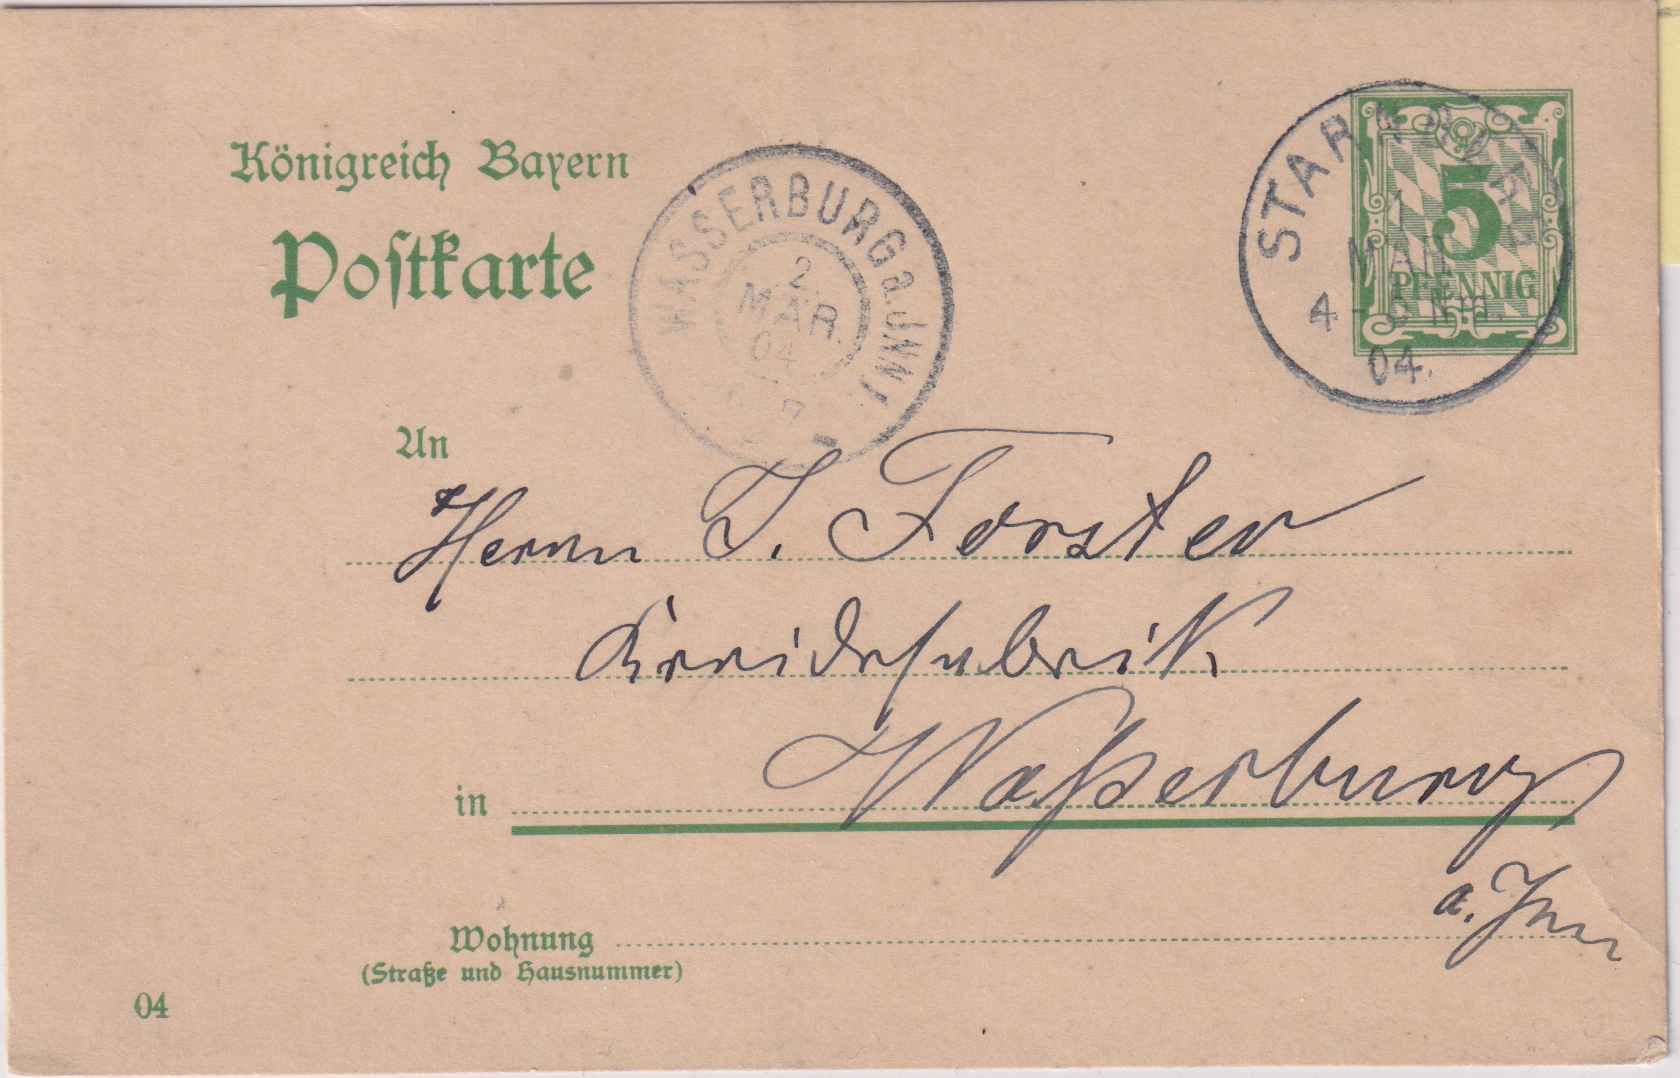 Königreich Bayern
Postkarte
WASSERBURG a. JNN I.
2.
MÄR.
04
STARNBERG.
1
MÄR
4 - 5 Nm.
04.
5
PFENNIG
An
Herrn J. Forster
Kreidefabrik
in Waßerburg
a. Inn
Wohnung
(Straße und Hausnummer)
04